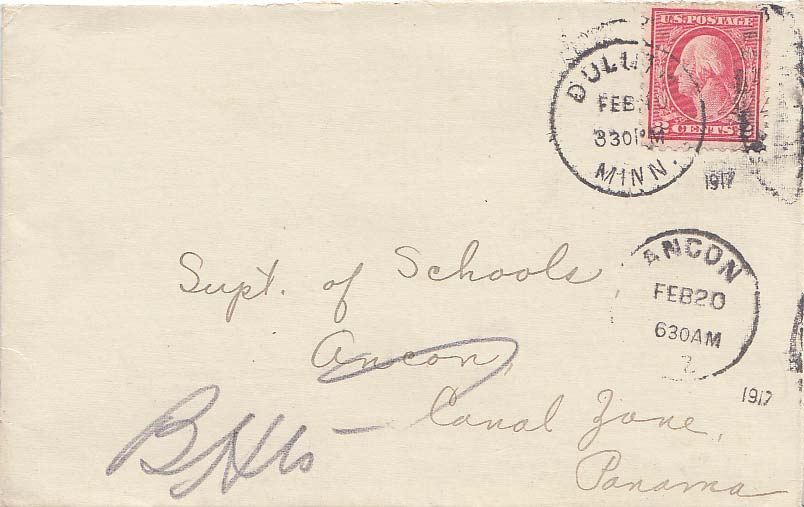 U.S. POSTAGE
2 CENTS
DULUTH
FEB
330PM
MINN.
1917
ANCON
FEB20
630AM
1917
Supt. of Schools,
Ancon,
Canal Zone,
Panama